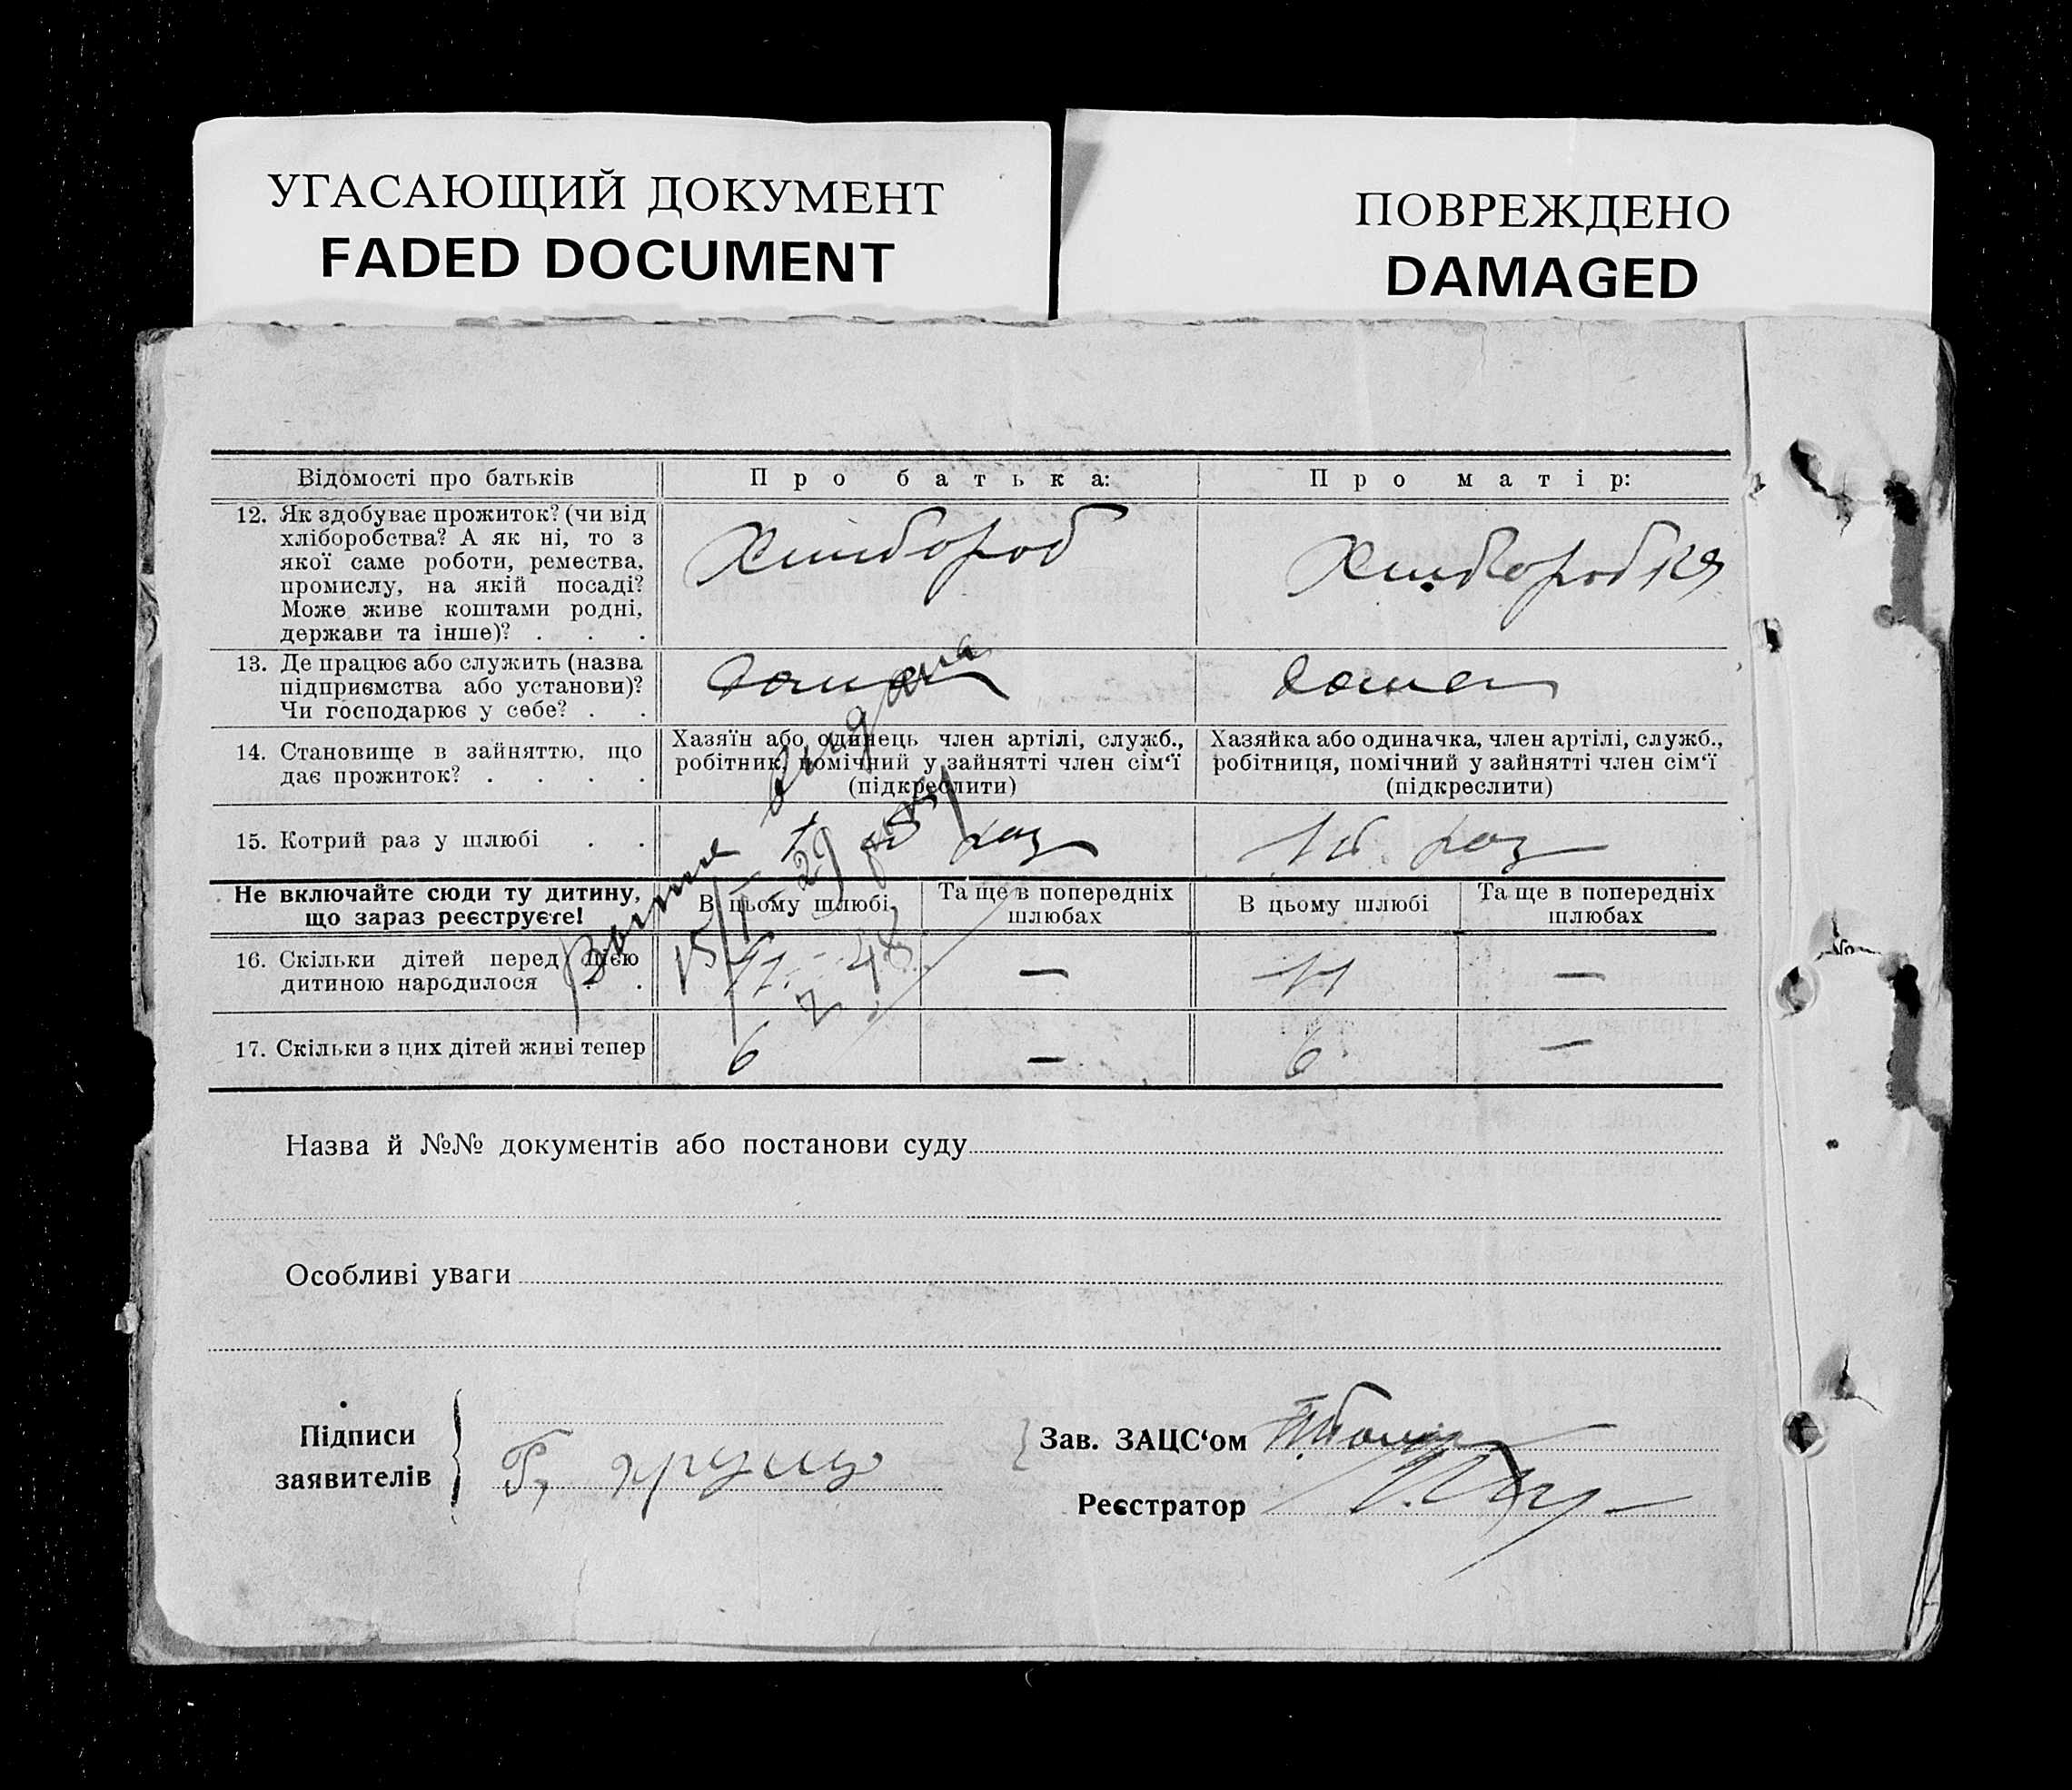 УГАСАЮЩИЙ ДОКУМЕНТ
FADED DOCUMENT
ПОВРЕЖДЕНО
DAMAGED
Відомості про батьків
Про батька:
Про матір:
12. Як здобуває прожиток? (чи від
хліборобства? А як ні, то з
якої саме роботи, ремества,
промислу, на якій посаді?
Може живе коштами родні,
держави та інше)? . . .
Хлібороб
Хліборобка
13. Де працює або служить (назва
підприємства або установи)?
Чи господарює у себе? . .
дома
дома
14. Становище в зайняттю, що
дає прожиток? . . . .
Хазяїн або одинець член артілі, служб.,
робітник, помічний у зайнятті член сім‘ї
(підкреслити)
Хазяйка або одиначка, член артілі, служб.,
робітниця, помічний у зайнятті член сім‘ї
(підкреслити)
15. Котрий раз у шлюбі . .
раз
1й раз
Не включайте сюди ту дитину,
що зараз реєструєте!
В цьому шлюбі
Та ще в попередніх
шлюбах
В цьому шлюбі
Та ще в попередніх
шлюбах
16. Скільки дітей перед цією
дитиною народилося . .
11
—
11
—
17. Скільки з цих дітей живі тепер
6
—
6
—
Назва й №№ документів або постанови суду
Особливі уваги
Підписи
заявителів
Зав. ЗАЦС‘ом
Реєстратор